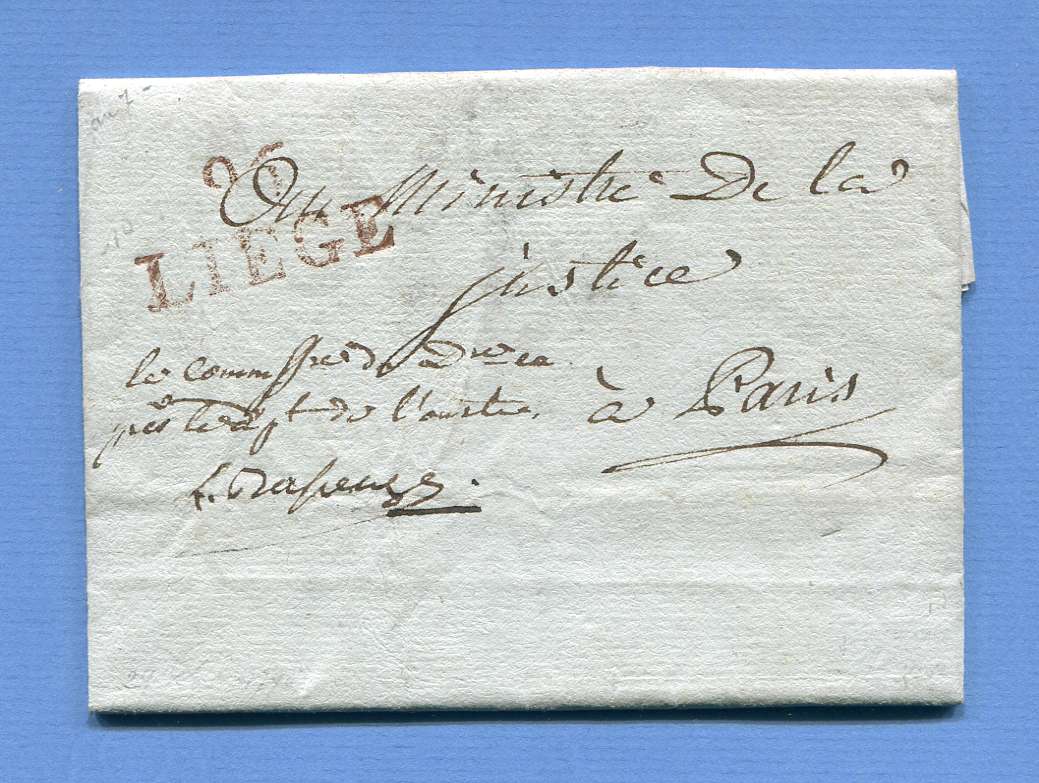 an 7 -
96
LIEGE
Au Ministre De la
justice
à Paris
le commssre du Dre ex
près le dept de l'ourte.